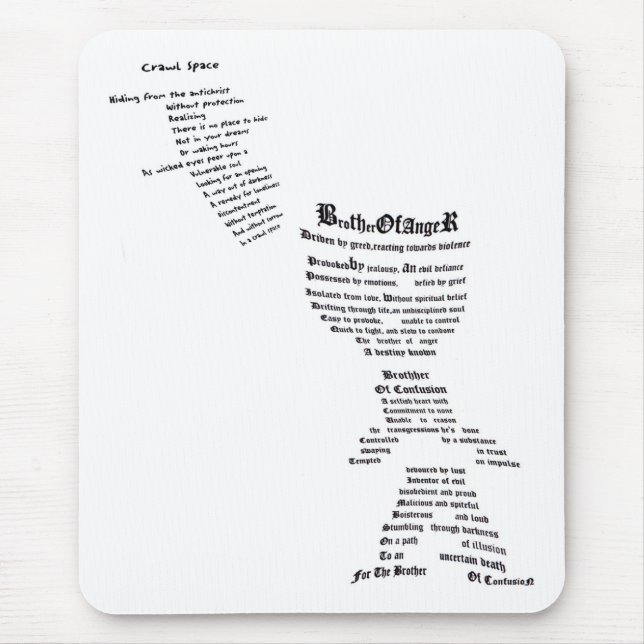 Crawl Space
Hiding from the antichrist
Without protection
Realizing
There is no place to hide
Not in your dreams
Or waking hours
As wicked eyes peer upon a
Vulnerable soul
Looking for an opening
A way out of darkness
A remedy for loneliness
Discontentment
Without temptation
And without sorrow
In a crawl space
BrotherOfAngeR
Driven by greed,reacting towards violence
Provokedby jealousy, an evil defiance
Possessed by emotions, defied by grief
Isolated from love, Without spiritual belief
Drifting through life,an undisciplined soul
Easy to provoke, unable to control
Quick to fight, and slow to condone
The brother of anger
A destiny known
Brothher
Of Confusion
A selfish heart with
Commitment to none
Unable to reason
the transgressions he's done
Controlled by a substance
swaying in trust
Tempted on impulse
devoured by lust
Inventor of evil
disobedient and proud
Malicious and spiteful
Boisterous and loud
Stumbling through darkness
On a path of illusion
To an uncertain death
For The Brother Of ConfusioN